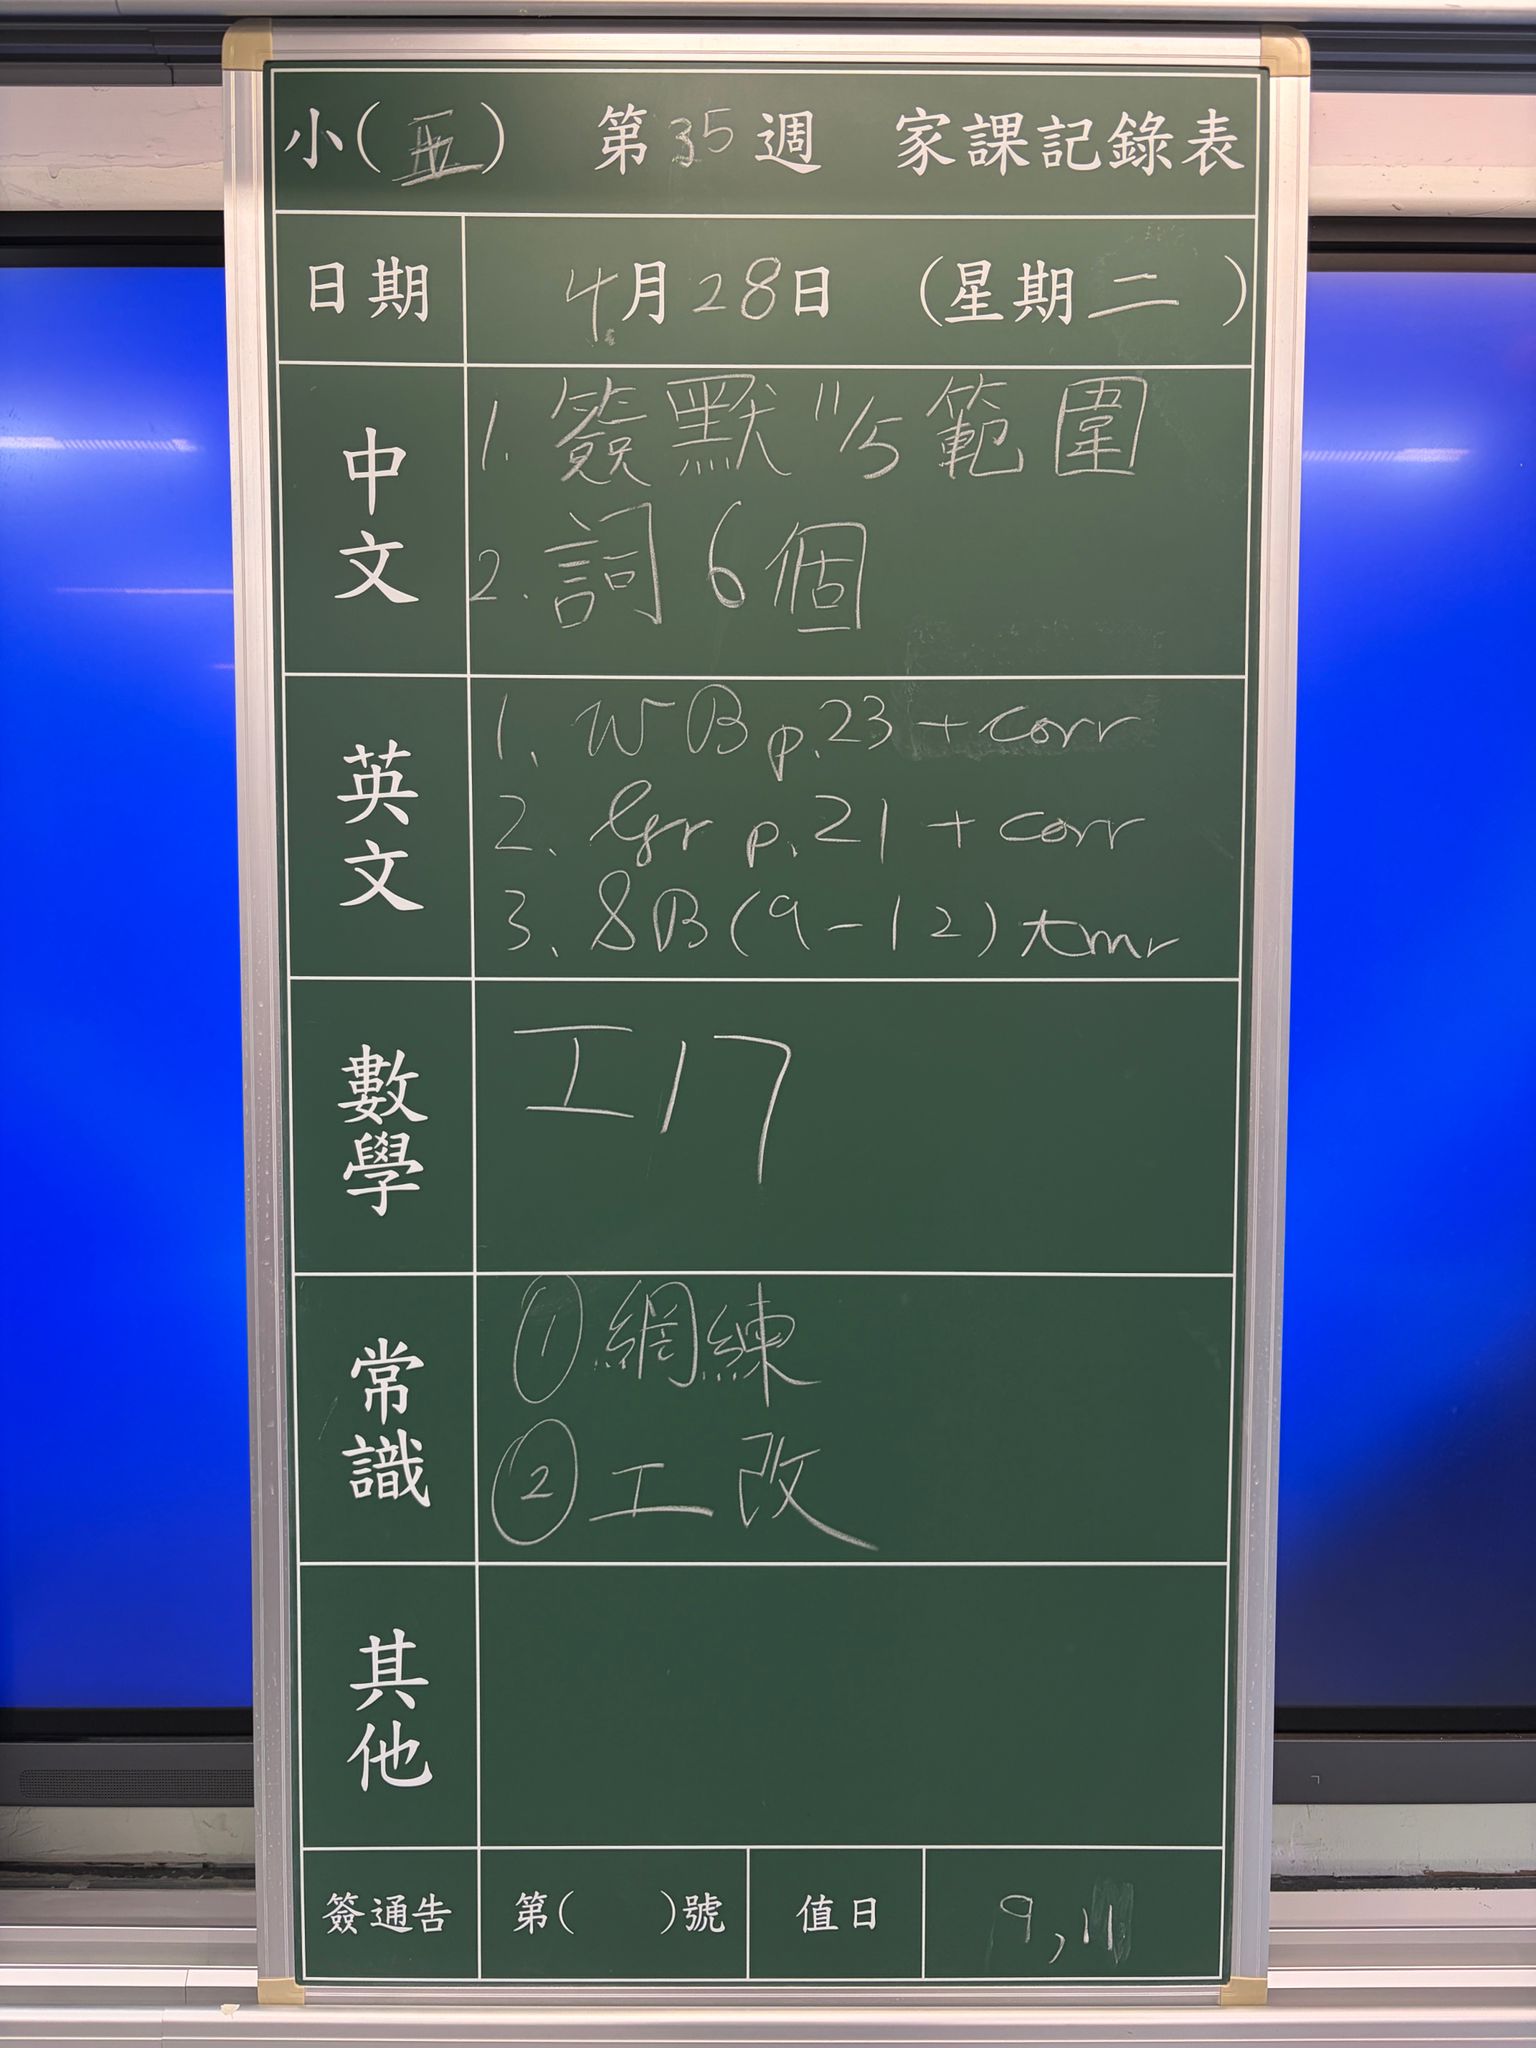 小(五) 第35週 家課記錄表
日期 4月28日 (星期二)
中文
1. 簽默 11/5 範圍
2. 詞6個
英文
1. WB p.23 + corr
2. Gr p.21 + corr
3. SB (9-12) tmr
數學
工17
常識
① 網練
② 工改
其他
簽通告 第( )號 值日 9, 11